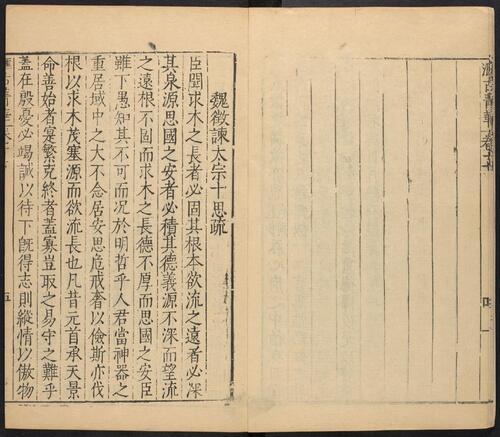 魏徵諫太宗十思疏
臣聞求木之長者必固其根本欲流之遠者必浚
其泉源思國之安者必積其德義源不深而望流
之遠根不固而求木之長德不厚而思國之安臣
雖下愚知其不可而況於明哲乎人君當神器之
重居域中之大不念居安思危戒奢以儉斯亦伐
根以求木茂塞源而欲流長也凡昔元首承天景
命善始者寔繁克終者蓋寡豈取之易守之難乎
蓋在殷憂必竭誠以待下旣得志則縱情以傲物